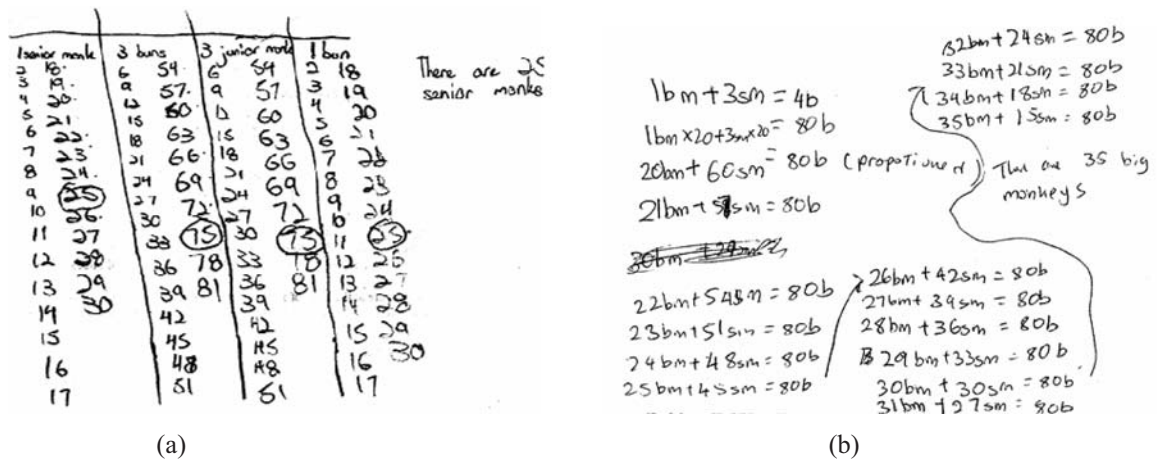 1 senior monk 3 buns 3 junior monk 1 bun
2 18 6 54 6 54 2 18
3 19 9 57 9 57 3 19
4 20 12 60 12 60 4 20
5 21 15 63 15 63 5 21
6 22 18 66 18 66 6
7 23 21 69 21 69 7 23
8 24 24 72 24 72 8 24
9 25 27 75 27 75 9 25
10 26 30 78 30 78 10 26
11 27 33 81 33 81 11 27
12 28 36 36 12 28
13 29 39 39 13 29
14 30 42 42 14 30
15 45 45 15
16 48 48 16
17 51 51 17
There are 25
senior monks
(a)
1bm+3sm = 4b
1bm×20+3sm×20 = 80b
20bm+60sm = 80b (propotioner)
21bm+57sm = 80b
22bm+54sm = 80b
23bm+51sm = 80b
24bm+48sm = 80b
25bm+45sm = 80b
26bm+42sm = 80b
27bm+39sm = 80b
28bm+36sm = 80b
29bm+33sm = 80b
30bm+30sm = 80b
31bm+27sm = 80b
32bm+24sm = 80b
33bm+21sm = 80b
34bm+18sm = 80b
35bm+15sm = 80b
Ther are 35 big
monkeys
(b)